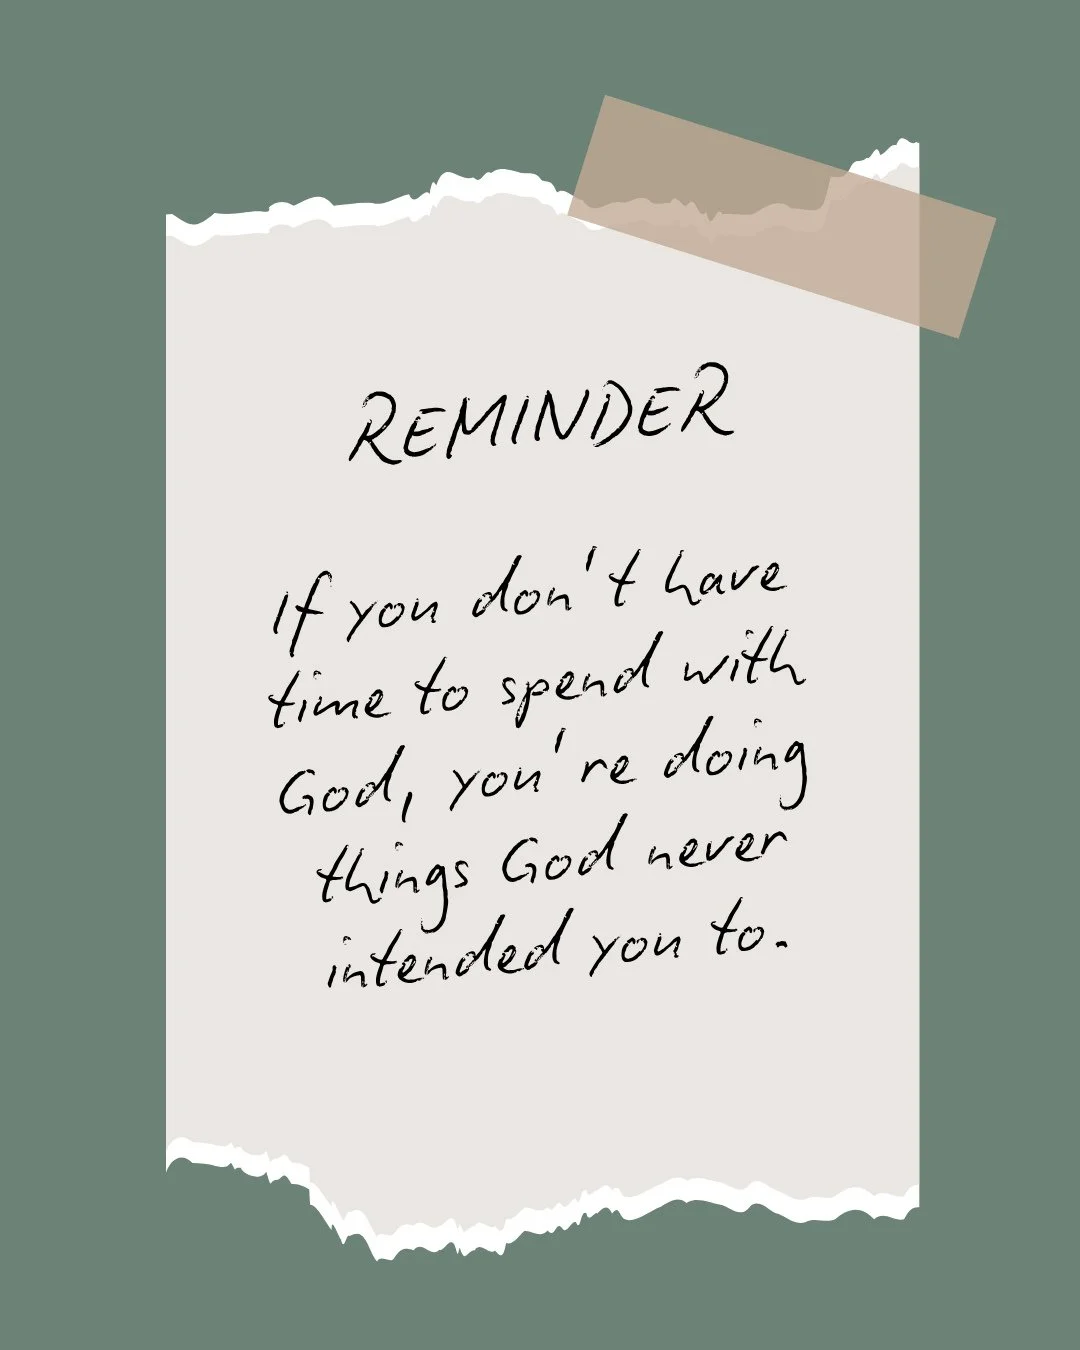 REMINDER
If you don't have
time to spend with
God, you're doing
things God never
intended you to.